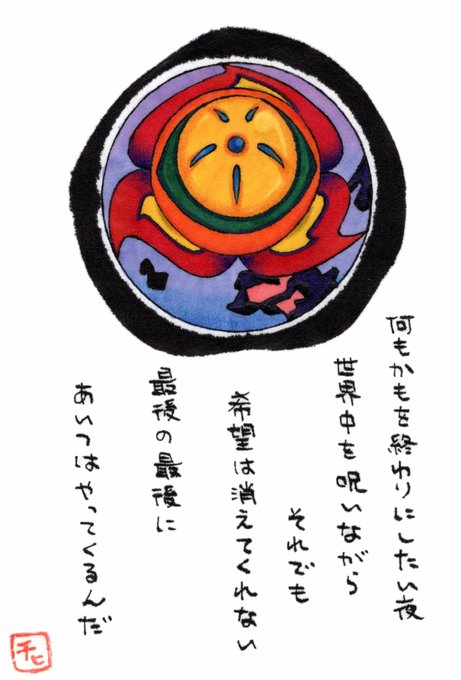 何もかもを終わりにしたい夜
世界中を呪いながら
それでも
希望は消えてくれない
最後の最後に
あいつはやってくるんだ